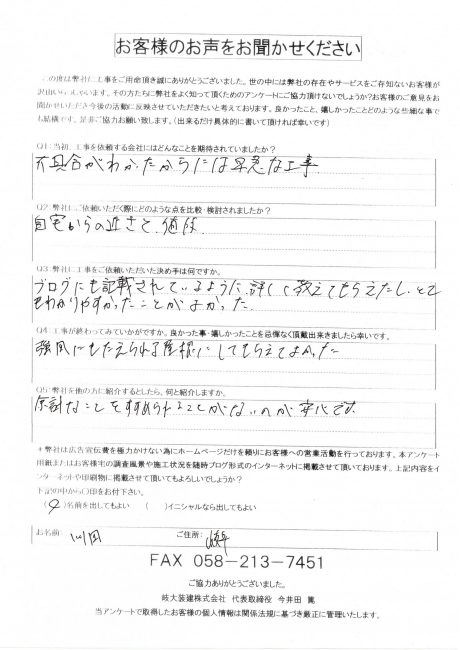 お客様のお声をお聞かせください
この度は弊社に工事をご用命頂き誠にありがとうございました。世の中には弊社の存在やサービスをご存知ないお客様が
沢山いらっしゃいます。その方たちに弊社をよく知って頂くためのアンケートにご協力頂けないでしょうか?お客様のご意見をお
聞かせいただき今後の活動に反映させていただきたいと考えております。良かったこと、嬉しかったことどのような些細な事で
も結構です。是非ご協力お願い致します。(出来るだけ具体的に書いて頂ければ幸いです)
Q1:当初、工事を依頼する会社にはどんなことを期待されていましたか?
不具合がわかったからには早急な工事
Q2:弊社にご依頼いただく際にどのような点を比較・検討されましたか?
自宅からの近さと、値段
Q3:弊社に工事をご依頼いただいた決め手は何ですか。
ブログにも記載されているように、詳しく教えてもらえたし、とて
もわかりやすかったことがよかった
Q4:工事が終わってみていかがですか。良かった事・嬉しかったことを忌憚なく頂戴出来きましたら幸いです。
強風にもたえられる屋根にしてもらえてよかった
Q5:弊社を他の方に紹介するとしたら、何と紹介しますか。
余計なことをすすめられることがないのが安心です
*弊社は広告宣伝費を極力かけない為にホームページだけを頼りにお客様への営業活動を行っております。本アンケート
用紙またはお客様宅の調査風景や施工状況を随時ブログ形式のインターネットに掲載させて頂いております。上記内容をイ
ンターネットや印刷物に掲載させて頂いてもよろしいでしょうか?
下記の中から○印をお付下さい。
( )名前を出してもよい ( )イニシャルなら出してもよい
お名前: ご住所: 岐阜
FAX 058-213-7451
ご協力ありがとうございました。
岐大装建株式会社 代表取締役 今井田 篤
当アンケートで取得したお客様の個人情報は関係法規に基づき厳正に管理いたします。